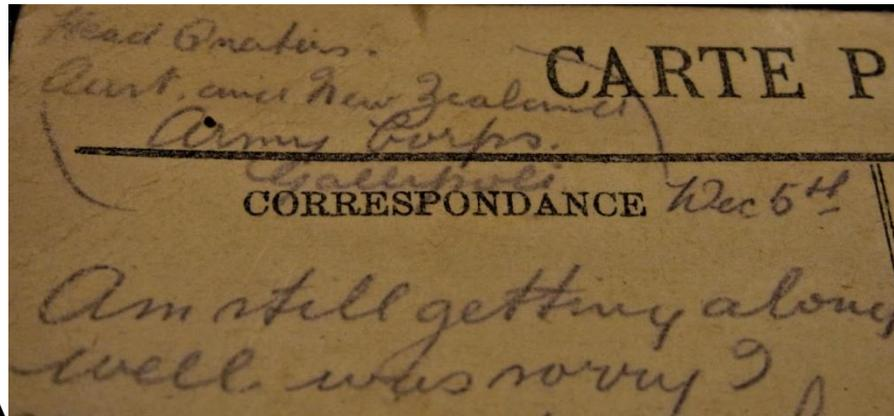 Head Quarters.
Aust. and New Zealand
Army Corps.
Gallipoli
CARTE P
CORRESPONDANCE Dec 5th
Am still getting along
well was sorry I